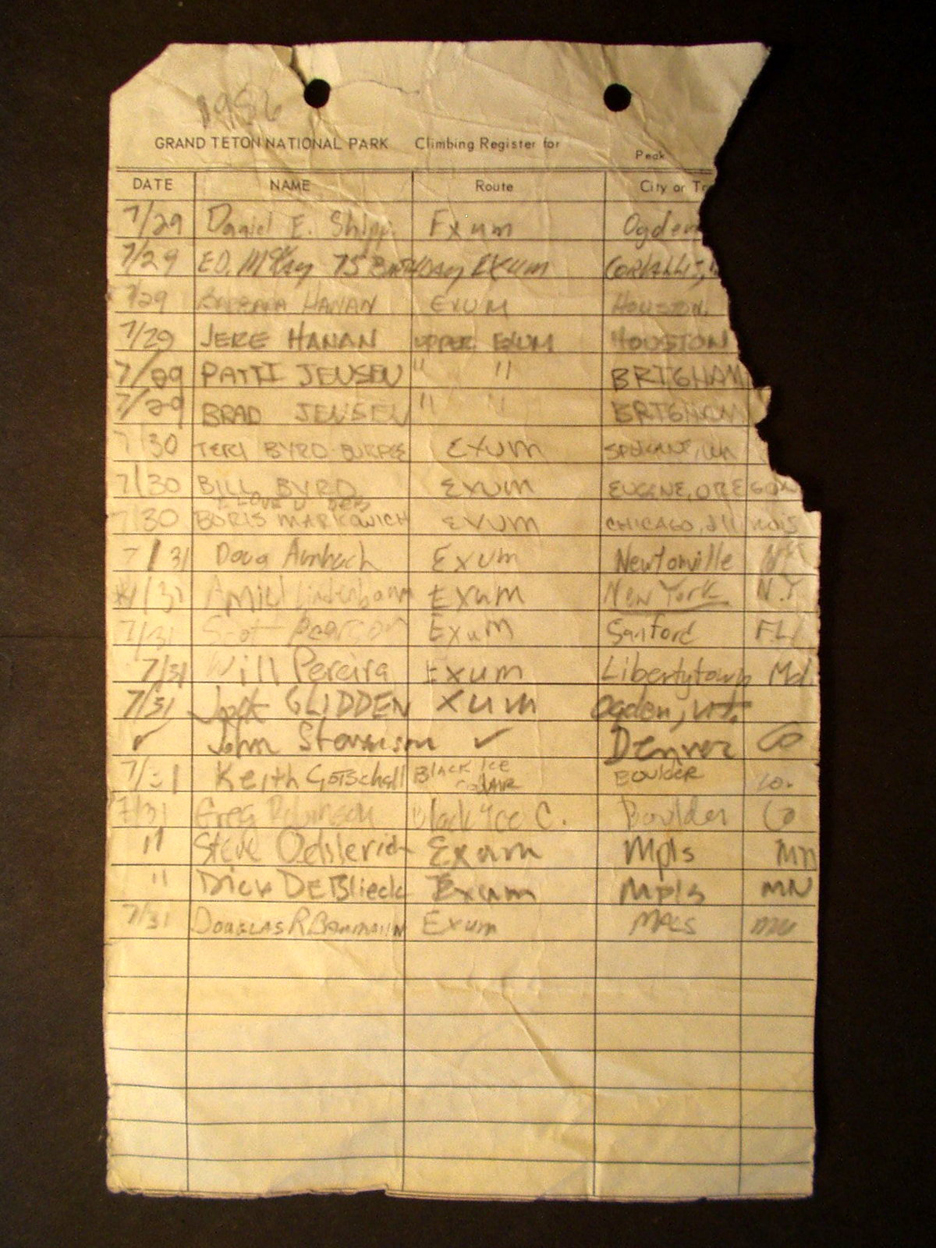 1986
GRAND TETON NATIONAL PARK Climbing Register for Peak
DATE NAME Route City or
7/29 Daniel E. Exum Ogden
7/29 ED. 75 BIRTHDAY EXUM CORVALLIS,
7/29 BARBARA HANAN EXUM HOUSTON,
7/29 JERE HANAN UPPER EXUM HOUSTON
7/29 PATTI JENSEN " " BRIGHAM
7/29 BRAD JENSEN " " BRIGHAM
7/30 TERI BYRD-BURRES EXUM SPOKANE, WA
7/30 BILL BYRD EXUM EUGENE, OREGON
I LOVE U
7/30 BORIS MARKOVICH EXUM CHICAGO, Illinois
7/31 Doug Exum Newtonville
7/31 Exum New York N.Y.
7/31 Scott Pearson Exum Sanford FL
7/31 Will Pereira Exum Libertytown Md.
7/31 Jack GLIDDEN XUM Ogden, Ut.
✓ John ✓ Denver CO
7/31 Keith BLACK ICE BOULDER CO.
7/31 Greg Robinson Black Ice C. Boulder CO
" Steve Exum Mpls MN
" Dick DEBlieck Exum Mpls MN
7/31 DOUGLAS R BAUMANN Exum MPLS MN